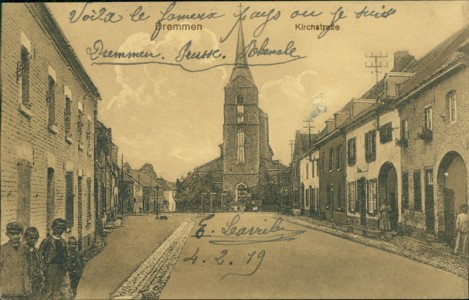 Voila le fameux pays ou je suis
Dremmen Kirchstraße
Dremmen. Prusse. Rhenale
E.
4.2.19